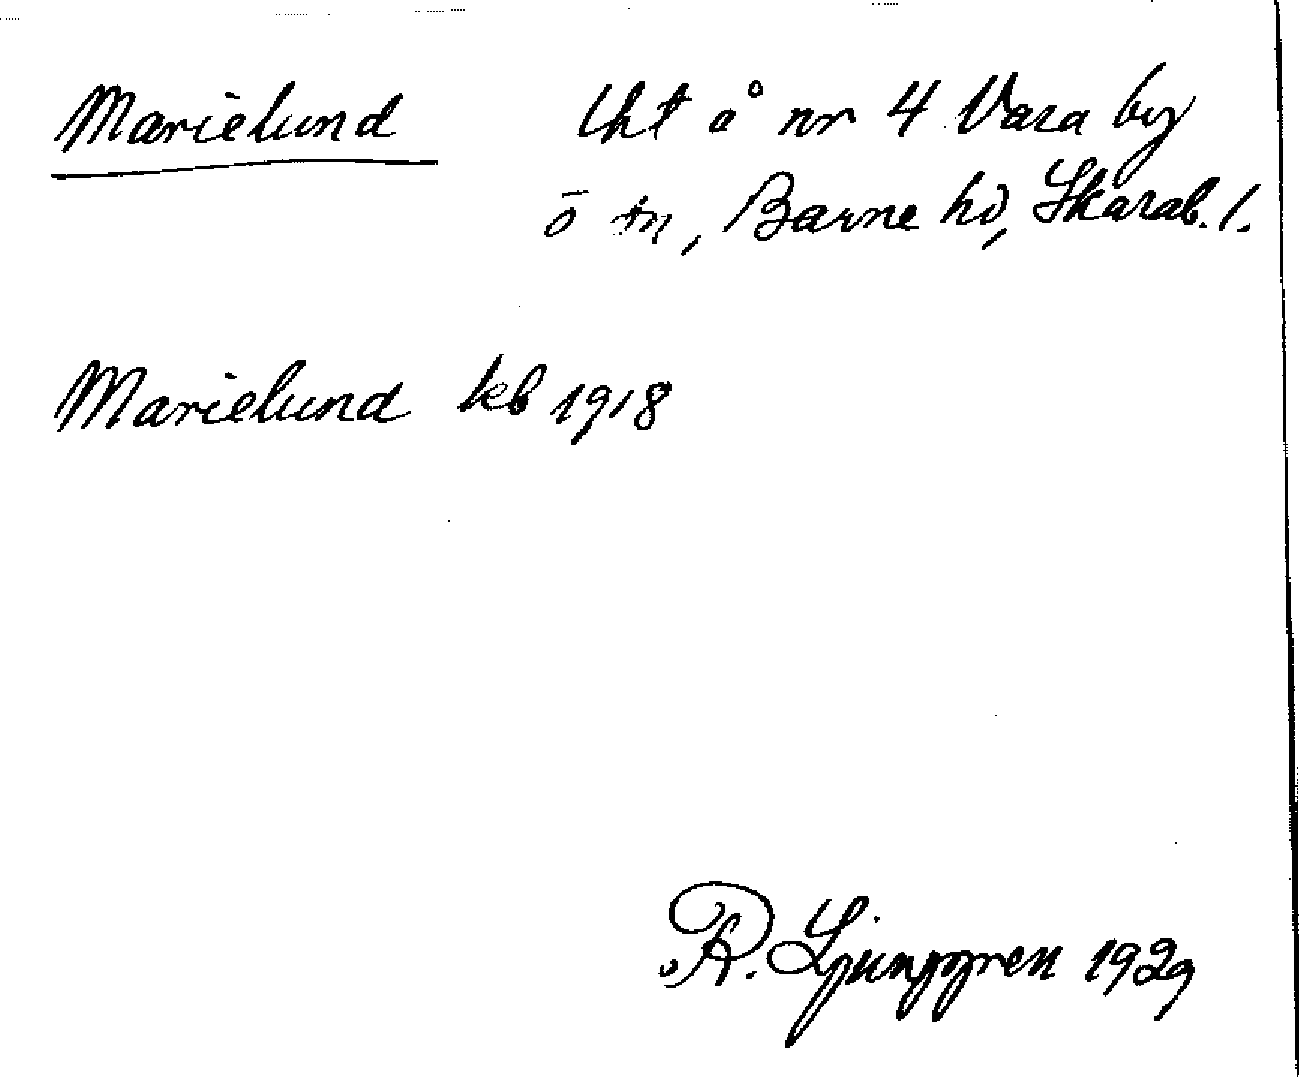 Marielund lht å nr 4 Vara by
ö sn, Barne hd, Skarab. l.
Marielund kb 1918
R. Ljunggren 1929